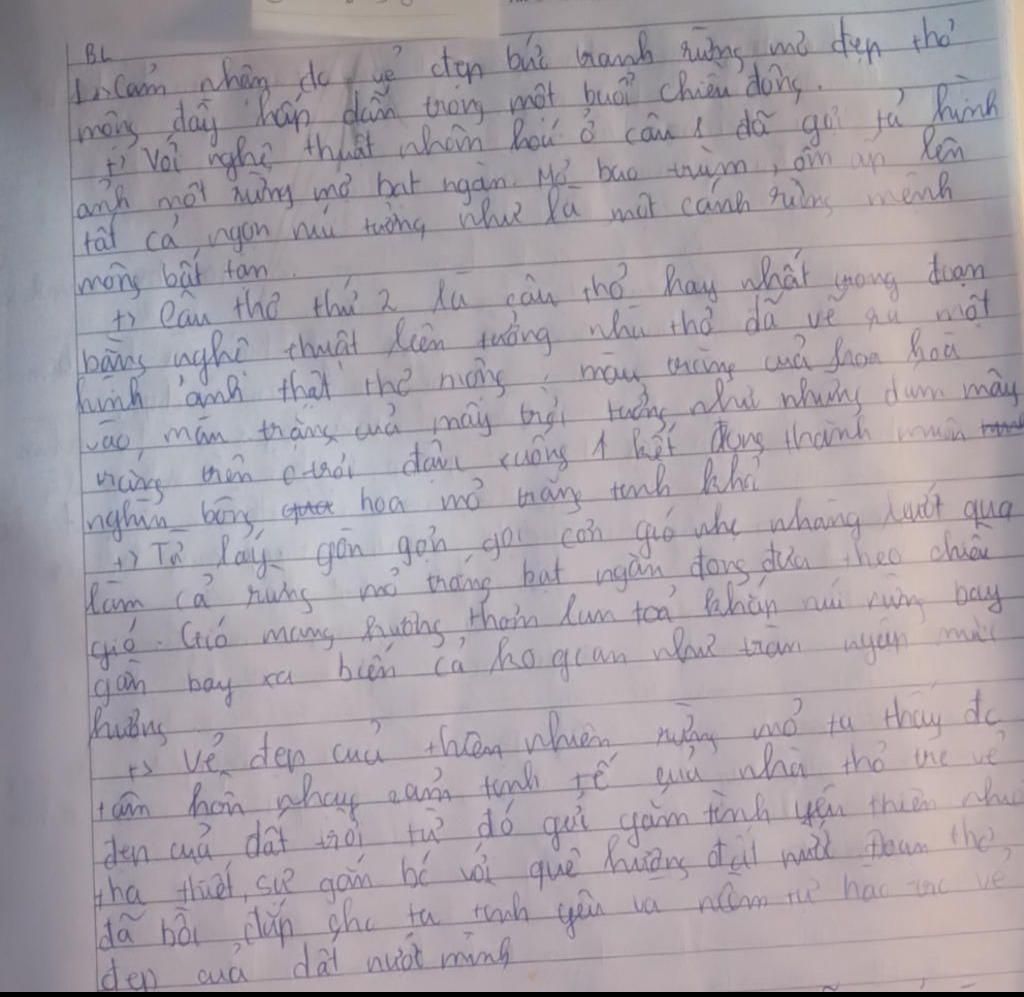 BL
1.> Cảm nhận đc vẻ đẹp bức tranh rừng mơ đẹp thơ
mộng đầy hấp dẫn trong một buổi chiều đông.
+> Với nghệ thuật nhân hoá ở câu 1 đã gợi tả hình
ảnh một rừng mơ bạt ngàn. Mơ bao trùm, ôm ấp lên
tất cả ngọn núi tưởng như là một cánh rừng mênh
mông bất tan.
+> Câu thơ thứ 2 là câu thơ hay nhất trong đoạn
bằng nghệ thuật liên tưởng nhà thơ đã vẽ ra một
hình ảnh thật thơ mộng, màu trắng của hoa hoà
vào màn trắng của mây trời tưởng như những đám mây
trắng trên trời đậu xuống kết đọng thành muôn
nghìn bông hoa mơ trắng tinh khôi
+> Từ láy gờn gợn gợi cơn gió nhẹ nhàng lướt qua
làm cả rừng mơ trắng bạt ngàn đong đưa theo chiều
gió. Gió mang hương thơm lan toả khắp núi rừng bay
gần bay xa biến cả ko gian như tràn ngập mùi
hương
+> Vẻ đẹp của thiên nhiên rừng mơ ta thấy đc
tâm hồn nhạy cảm tinh tế của nhà thơ trc vẻ
đẹp của đất trời từ đó gửi gắm tình yêu thiên nhiên
tha thiết, sự gắn bó với quê hương đất nước. Đoạn thơ
đã bồi đắp cho ta tình yêu và niềm tự hào trc vẻ
đẹp của đất nước mình